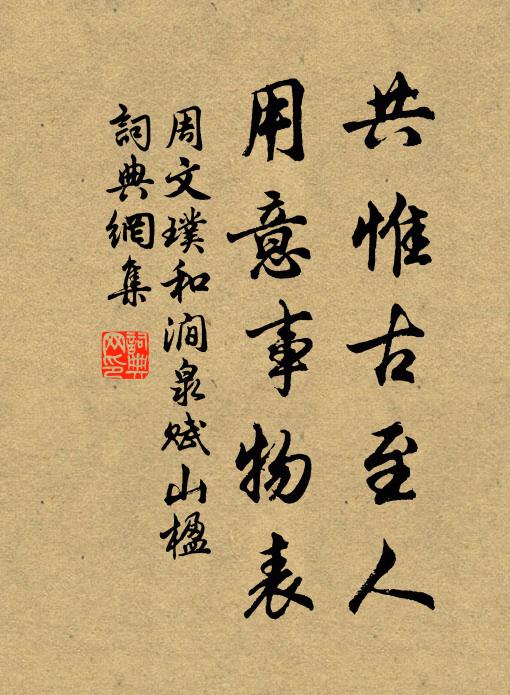 共惟古至人
用意事物表
周文璞和澗泉賦山楹
詞典網集
詞典網印